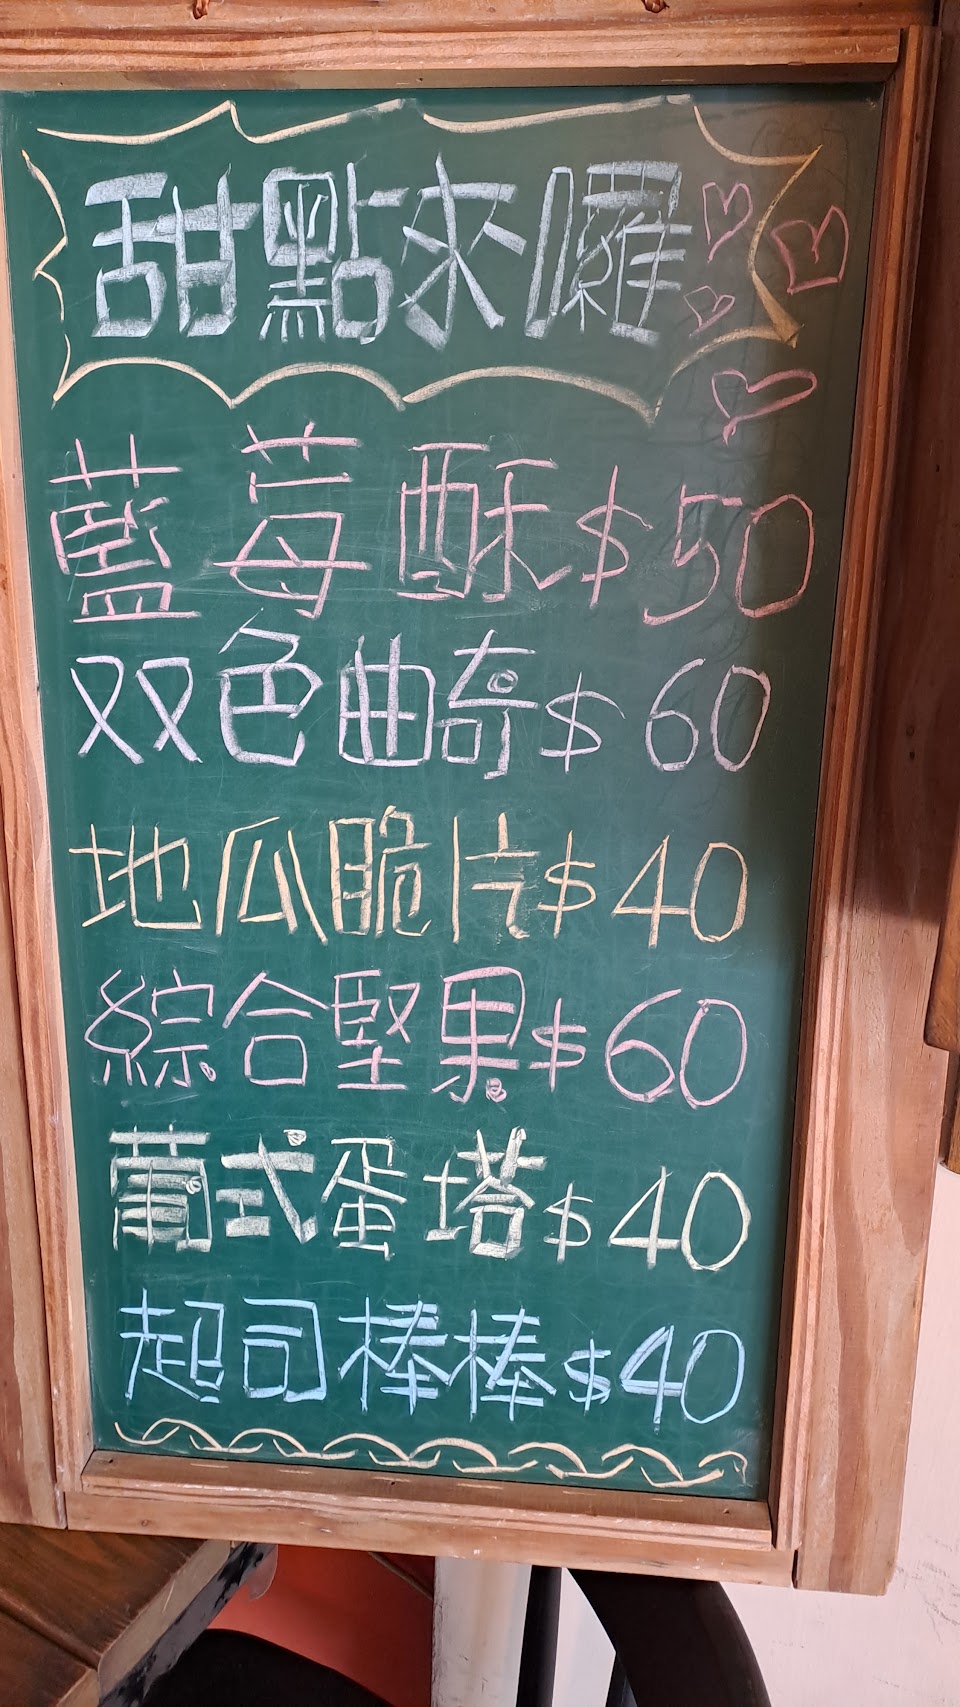 甜點來囉
藍莓酥$50
双色曲奇$60
地瓜脆片$40
綜合堅果$60
葡式蛋塔$40
起司棒棒$40